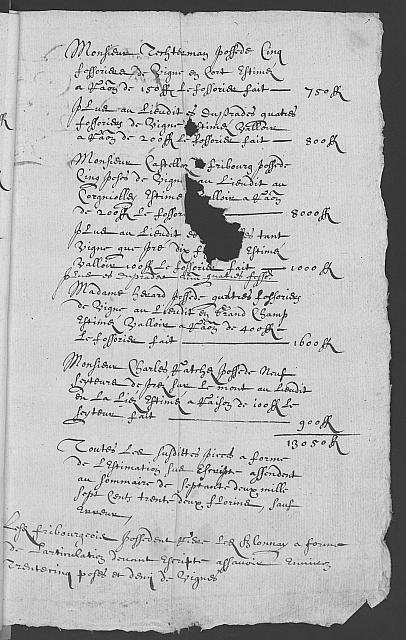 Monsieur Techterman possede Cinq
fossoriers de Vigne en Cort Estimé
a Raison de 150ff Le fossorier fait 750ff
plus au Lieudit quatres
fossoriers de Vigne Estimé Valloir
a Raison de 200ff Le fossorier fait 800ff
Monsieur Castella fribourg possede
Cinq poses de Vigne au Lieudit au
Estimé Valloir a Raison
de 200ff Le fossor 8000ff
plus au Lieudit tant
Vigne que pre dix Estimé
Valloir 100ff Le fossorier fait 1000ff
plus quatres fosse
Madame possede quatres fossoriers
de Vigne au Lieudit en Grand Champ
Estimé Valloir a Raison de 400ff
Le fossorier fait 1600ff
Monsieur Charles possede Neuf
seyteurs de prez sur Le mont au Lieudit
en La Estimé a Raison de 100ff Le
seyteur fait 900ff
13050ff
Toutes Les susdittes pieces a forme
de L'Estimation sus Escripte assendent
au sommaire de septante deux mille
sept Cents trente deux florins, sauf
Erreur
Les fribourgeois possedent Riere Les Blonnay a forme
de Particulation devant Escripte assavoir Environ
Trentecinq poses et demi de Vignes